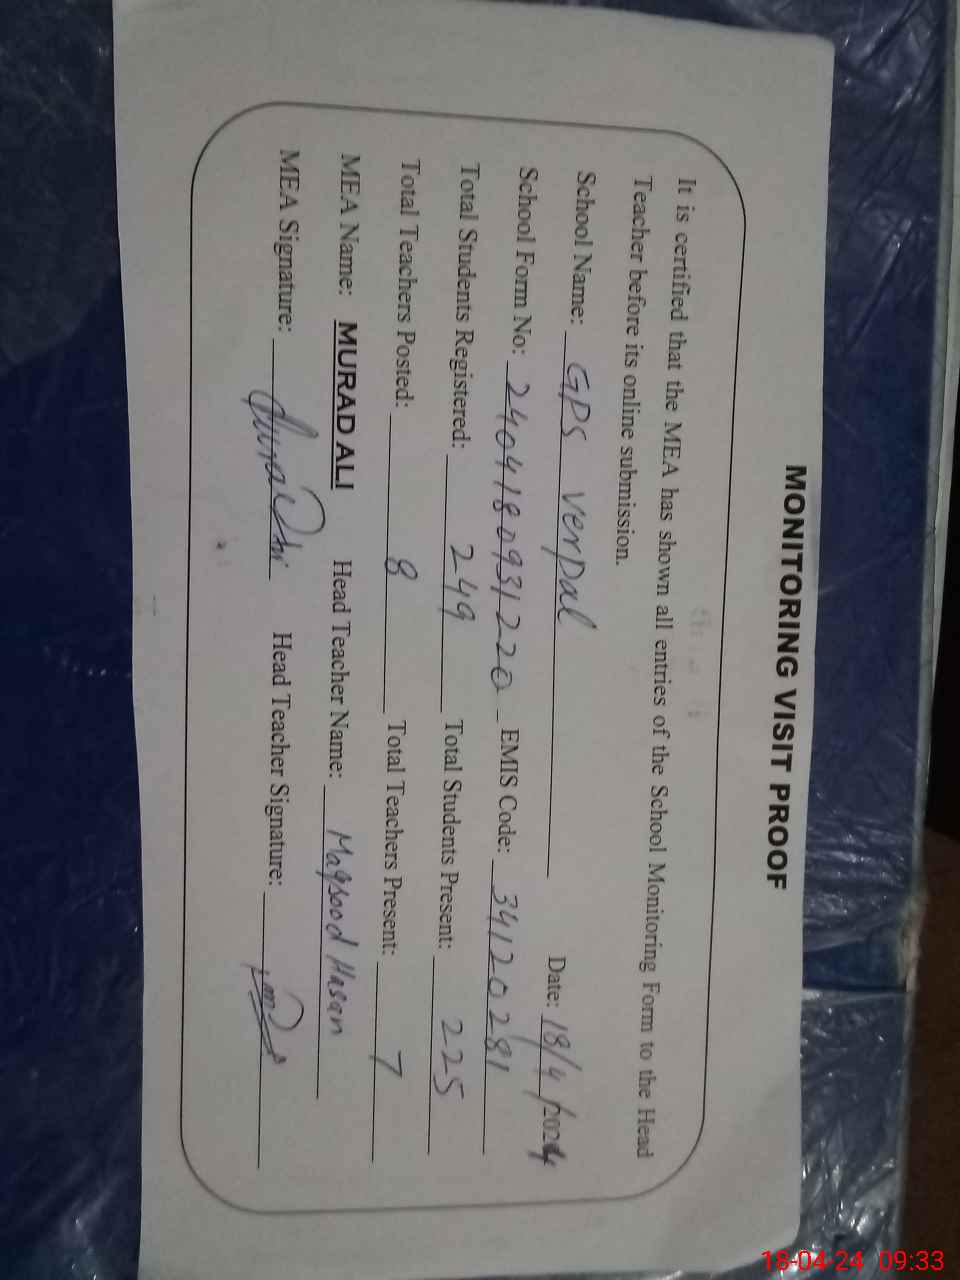 MONITORING VISIT PROOF
It is certified that the MEA has shown all entries of the School Monitoring Form to the Head
Teacher before its online submission.
School Name: GPS verpal Date: 18/4/2024
School Form No: 2404180931220 EMIS Code: 34120281
Total Students Registered: 249 Total Students Present: 225
Total Teachers Posted: 8 Total Teachers Present: 7
MEA Name: MURAD ALI Head Teacher Name: Maqsood Hasan
MEA Signature: Head Teacher Signature:
18-04-24 09:33